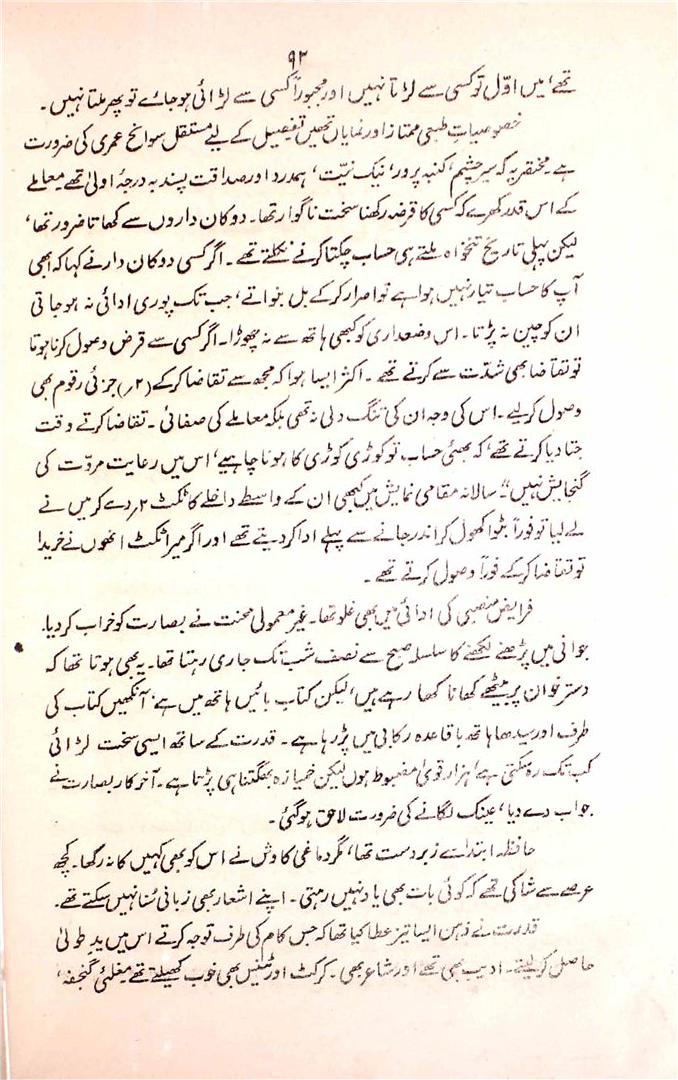 ۹۳
تھے، میں اوّل تو کسی سے لڑتا نہیں اور مجبوراً کسی سے لڑائی ہو جائے تو پھر ملتا نہیں۔
خصوصیاتِ طبعی ممتاز اور نمایاں تھیں تفصیل کے لیے مستقل سوانح عمری کی ضرورت
ہے۔ مختصر یہ کہ سیر چشم، کنبہ پرور، نیک نیّت، ہمدرد اور صداقت پسند بہ درجۂ اولیٰ تھے۔ معاملے
کے اس قدر کھرے کہ کسی کا قرضہ رکھنا سخت ناگوار تھا۔ دوکان داروں سے کھاتا ضرور تھا،
لیکن پہلی تاریخ تنخواہ ملتے ہی حساب چکتا کرنے نکلتے تھے۔ اگر کسی دوکان دار نے کہا کہ ابھی
آپ کا حساب تیار نہیں ہوا ہے تو اصرار کر کے بل بنواتے، جب تک پوری ادائی نہ ہو جاتی
ان کو چین نہ پڑتا۔ اس وضعداری کو کبھی ہاتھ سے نہ چھوڑا۔ اگر کسی سے قرض وصول کرنا ہوتا
تو تقاضا بھی شدّت سے کرتے تھے۔ اکثر ایسا ہوا کہ مجھ سے تقاضا کر کے (۲؍) جزئی رقوم بھی
وصول کر لیے۔ اس کی وجہ ان کی تنگ دلی نہ تھی بلکہ معاملے کی صفائی۔ تقاضا کرتے وقت
جتا دیا کرتے تھے، کہ بھئی حساب تو کوڑی کوڑی کا ہونا چاہیے، اس میں رعایت مروّت کی
گنجایش نہیں"۔ سالانہ مقامی نمایش میں کبھی ان کے واسطے داخلے کا ٹکٹ ۲؍ دے کر میں نے
لے لیا تو فوراً بٹوا کھول کر اندر جانے سے پہلے ادا کر دیتے تھے اور اگر میرا ٹکٹ انھوں نے خریدا
تو تقاضا کر کے فوراً وصول کرتے تھے۔
فرایض منصبی کی ادائی میں بھی غلو تھا۔ غیر معمولی محنت نے بصارت کو خراب کر دیا۔
جوانی میں پڑھنے لکھنے کا سلسلہ صبح سے نصف شب تک جاری رہتا تھا۔ یہ بھی ہوتا تھا کہ
دسترخوان پر بیٹھے کھانا کھا رہے ہیں، لیکن کتاب بائیں ہاتھ میں ہے، آنکھیں کتاب کی
طرف اور سیدھا ہاتھ باقاعدہ رکابی میں پڑ رہا ہے۔ قدرت کے ساتھ ایسی سخت لڑائی
کب تک رہ سکتی ہے، ہزار قویٰ مضبوط ہوں لیکن خمیازہ بھگتنا ہی پڑتا ہے۔ آخر کار بصارت نے
جواب دے دیا، عینک لگانے کی ضرورت لاحق ہو گئی۔
حافظہ ابتدا سے زبردست تھا، مگر دماغی کاوش نے اس کو بھی کہیں کا نہ رکھا۔ کچھ
عرصے سے شاکی تھے کہ کوئی بات بھی یاد نہیں رہتی۔ اپنے اشعار بھی زبانی سُنا نہیں سکتے تھے۔
قدرت نے ذہن ایسا تیز عطا کیا تھا کہ جس کام کی طرف توجہ کرتے اس میں ید طولیٰ
حاصل کر لیتے۔ ادیب بھی تھے اور شاعر بھی۔ کرکٹ اور ٹینس بھی خوب کھیلتے تھے۔ مغلئی گنجفہ،